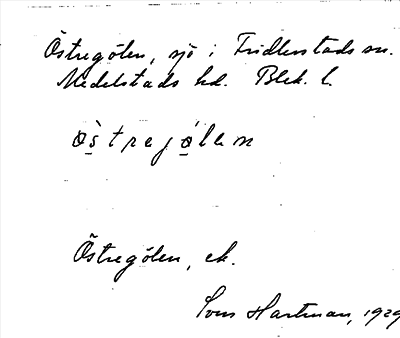 Östregölen, sjö i Fridlevstads sn.
Medelstads hd. Blek. l.
ö̀strejǫ́lən
Östregölen, ek.
Sven Hartman, 1929